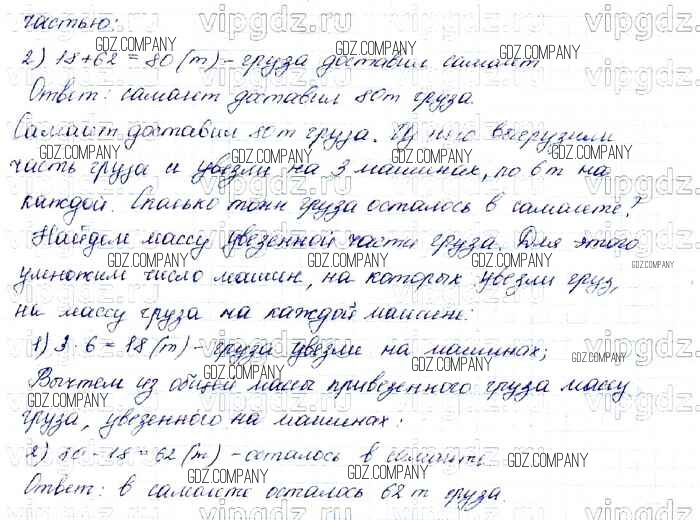 частью:
2) 18+62=80 (т) - груза доставил самолёт
Ответ: самолёт доставил 80 т груза.
Самолёт доставил 80 т груза. Из него выгрузили
часть груза и увезли на 3 машинах, по 6 т на
каждой. Сколько тонн груза осталось в самолете?
Найдем массу увезенной части груза. Для этого
умножим число машин, на которых увезли груз,
на массу груза на каждой машине:
1) 3 · 6 = 18 (т) - груза увезли на машинах;
Вычтем из общей массы привезенного груза массу
груза, увезенного на машинах:
2) 80 - 18 = 62 (т) - осталось в самолете.
Ответ: в самолете осталось 62 т груза.